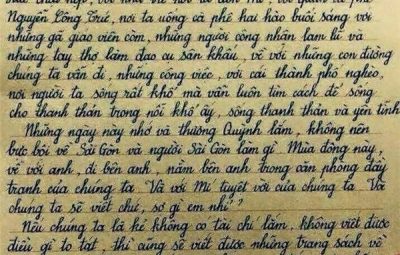 Nguyễn Công Trứ, nơi ta uống cà phê hai hào buổi sáng với
những gã giáo viên còm, những người công nhân lam lũ và
những tay thợ làm đạo cụ sân khấu, về với những con đường
chúng ta vẫn đi, những công viên, với cái thành phố nghèo,
nơi người ta sống rất khổ mà vẫn luôn tìm cách để sống
cho thanh thản trong nỗi khổ ấy, sống thanh thản và yên tĩnh
Những ngày này nhớ và thương Quỳnh lắm, không nên
bực bội về Sài Gòn và người Sài Gòn làm gì Mùa đông này
về với anh, đi bên anh, nằm bên anh trong căn phòng đầy
tranh của chúng ta Và với Mí tuyệt vời của chúng ta Và
chúng ta sẽ viết chứ, sợ gì em nhỉ?
Nếu chúng ta là kẻ không có tài chi lắm, không viết được
điều gì to tát, thì cũng sẽ viết được những trang sách về